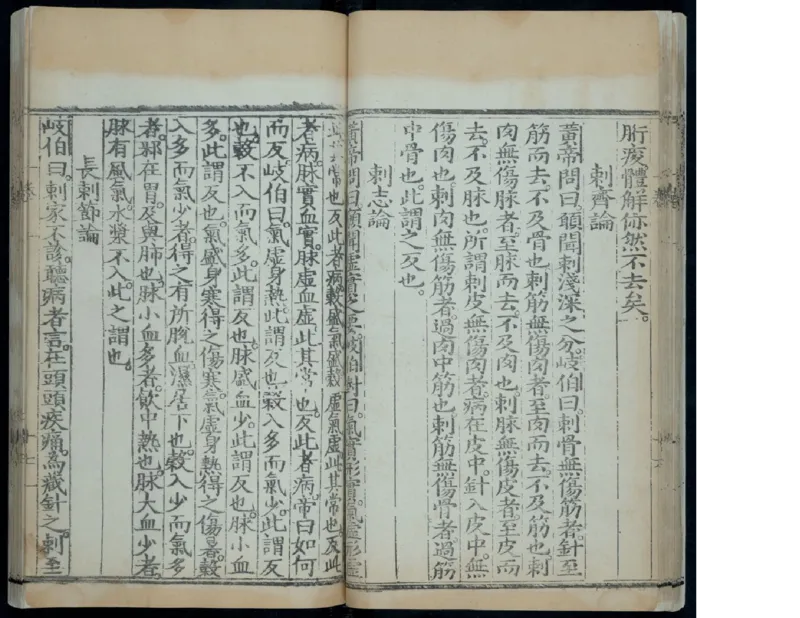 胻痠體解㑊然不去矣
刺齊論
黃帝問曰願聞刺淺深之分岐伯曰刺骨無傷筋者針至
筋而去不及骨也刺筋無傷肉者至肉而去不及筋也刺
肉無傷脉者至脉而去不及肉也刺脉無傷皮者至皮而
去不及脉也所謂刺皮無傷肉者病在皮中針入皮中無
傷肉也刺肉無傷筋者過肉中筋也刺筋無傷骨者過筋
中骨也此謂之反也
刺志論
黃帝問曰願聞虛實之要岐伯對曰氣實形實氣虛形虛
此其常也反此者病穀盛氣盛穀虛氣虛此其常也反此
者病脉實血實脉虛血虛此其常也反此者病帝曰如何
而反岐伯曰氣虛身熱此謂反也穀入多而氣少此謂反
也穀不入而氣多此謂反也脉盛血少此謂反也脉小血
多此謂反也氣盛身寒得之傷寒氣虛身熱得之傷暑穀
入多而氣少者得之有所脫血濕居下也穀入少而氣多
者邪在胃及與肺也脉小血多者飲中熱也脉大血少者
脉有風氣水漿不入此之謂也
長刺節論
岐伯曰刺家不診聽病者言在頭頭疾痛為藏針之刺至